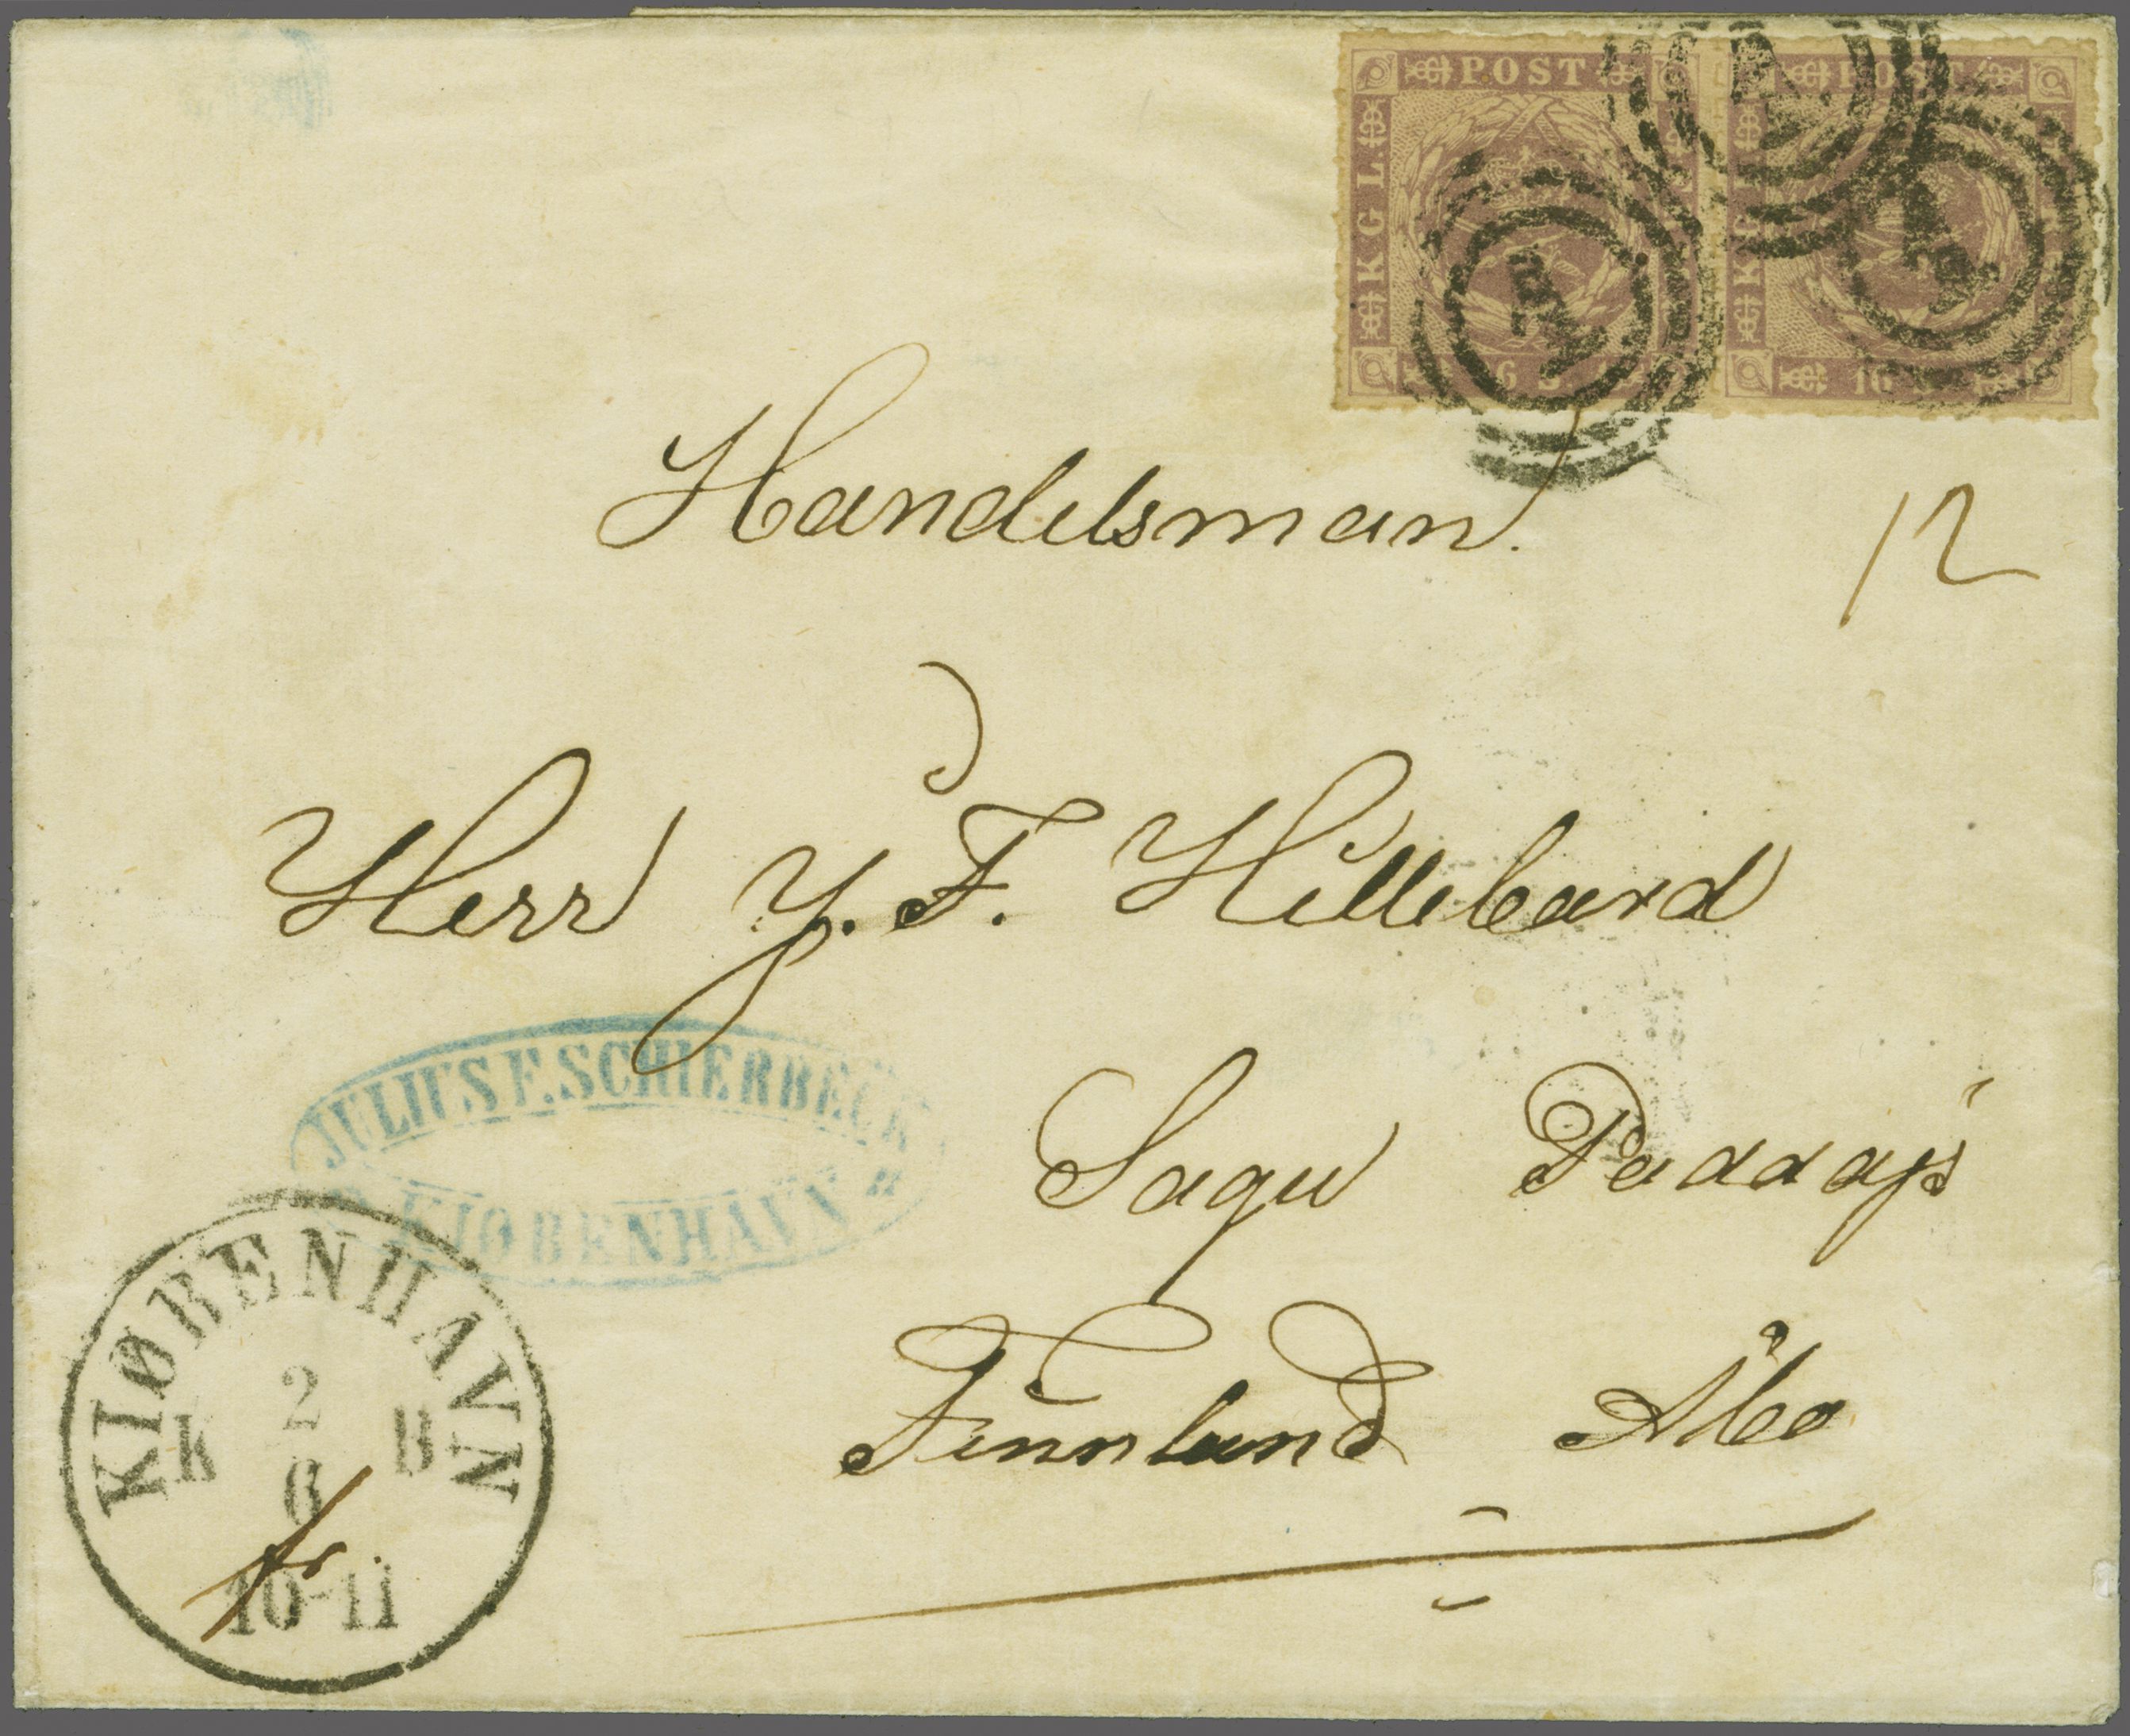 POST POST
KGL K
6 S 16
1
Handelsman.
12
Herr J. F. Hillebard
JULIUS F. SCHIERBECK
KJØBENHAVN
Sagu
Finnland Åbo
KIØBENHAVN
K B
2
6
fr
10-11